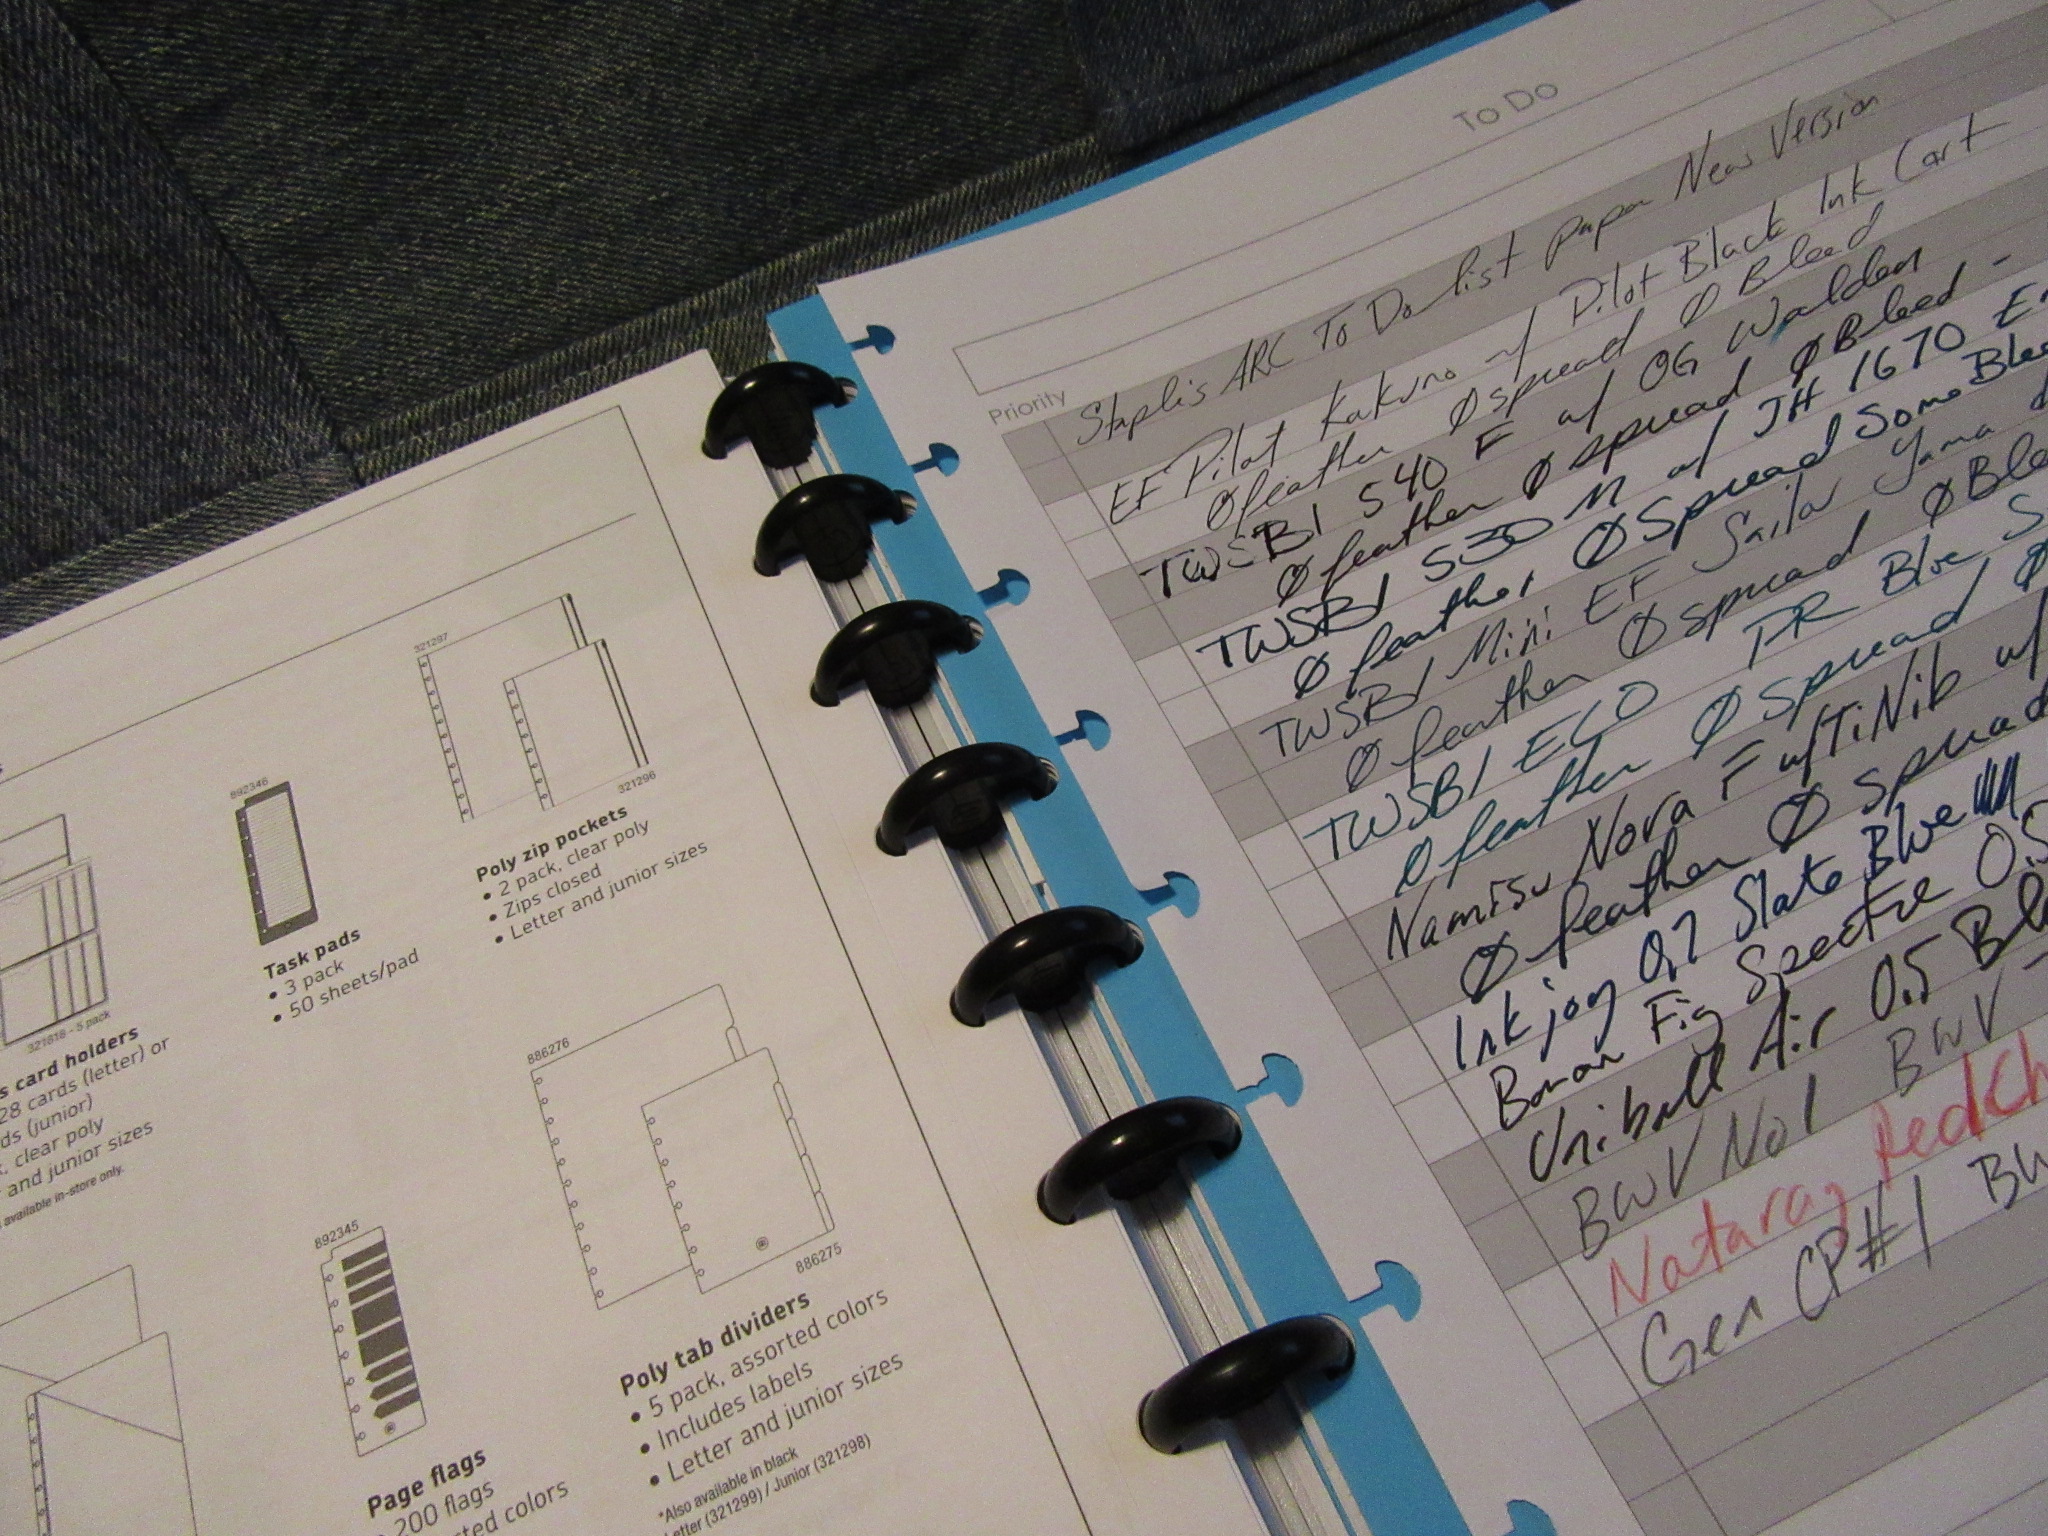 321297
321296
Poly zip pockets
• 2 pack, clear poly
• Zips closed
• Letter and junior sizes
892346
Task pads
• 3 pack
• 50 sheets/pad
321618 - 5 pack
s card holders
28 cards (letter) or
ds (junior)
, clear poly
and junior sizes
available in-store only.
886276
886275
Poly tab dividers
• 5 pack, assorted colors
• Includes labels
• Letter and junior sizes
*Also available in black
Letter (321299) / Junior (321298)
892345
Page flags
200 flags
ted colors
To Do
Priority
Staples ARC To Do list paper New Version
EF Pilot Kakuno w/ Pilot Black Ink Cart
Ø feather Ø spread Ø Bleed
TWSBI 540 F w/ OG Walden
Ø feather Ø spread Ø Bleed -
TWSBI 530 M w/ JH 1670 E
Ø feather, Ø Spread Some Blee
TWSBI Mini EF Sailor Yama
Ø feather Ø spread Ø Ble
TWSBI ECO PR Blue S
Ø feather Ø Spread Ø
Namisu Nova F w/ Ti Nib w/
Ø feather Ø spread
Inkjoy 0.7 Slate Blue
Baron Fig Spectre 0.5
Uniball Air 0.5 Bl
BWV No1 BWV -
Nataraj Red Ch
Gen CP #1 BW